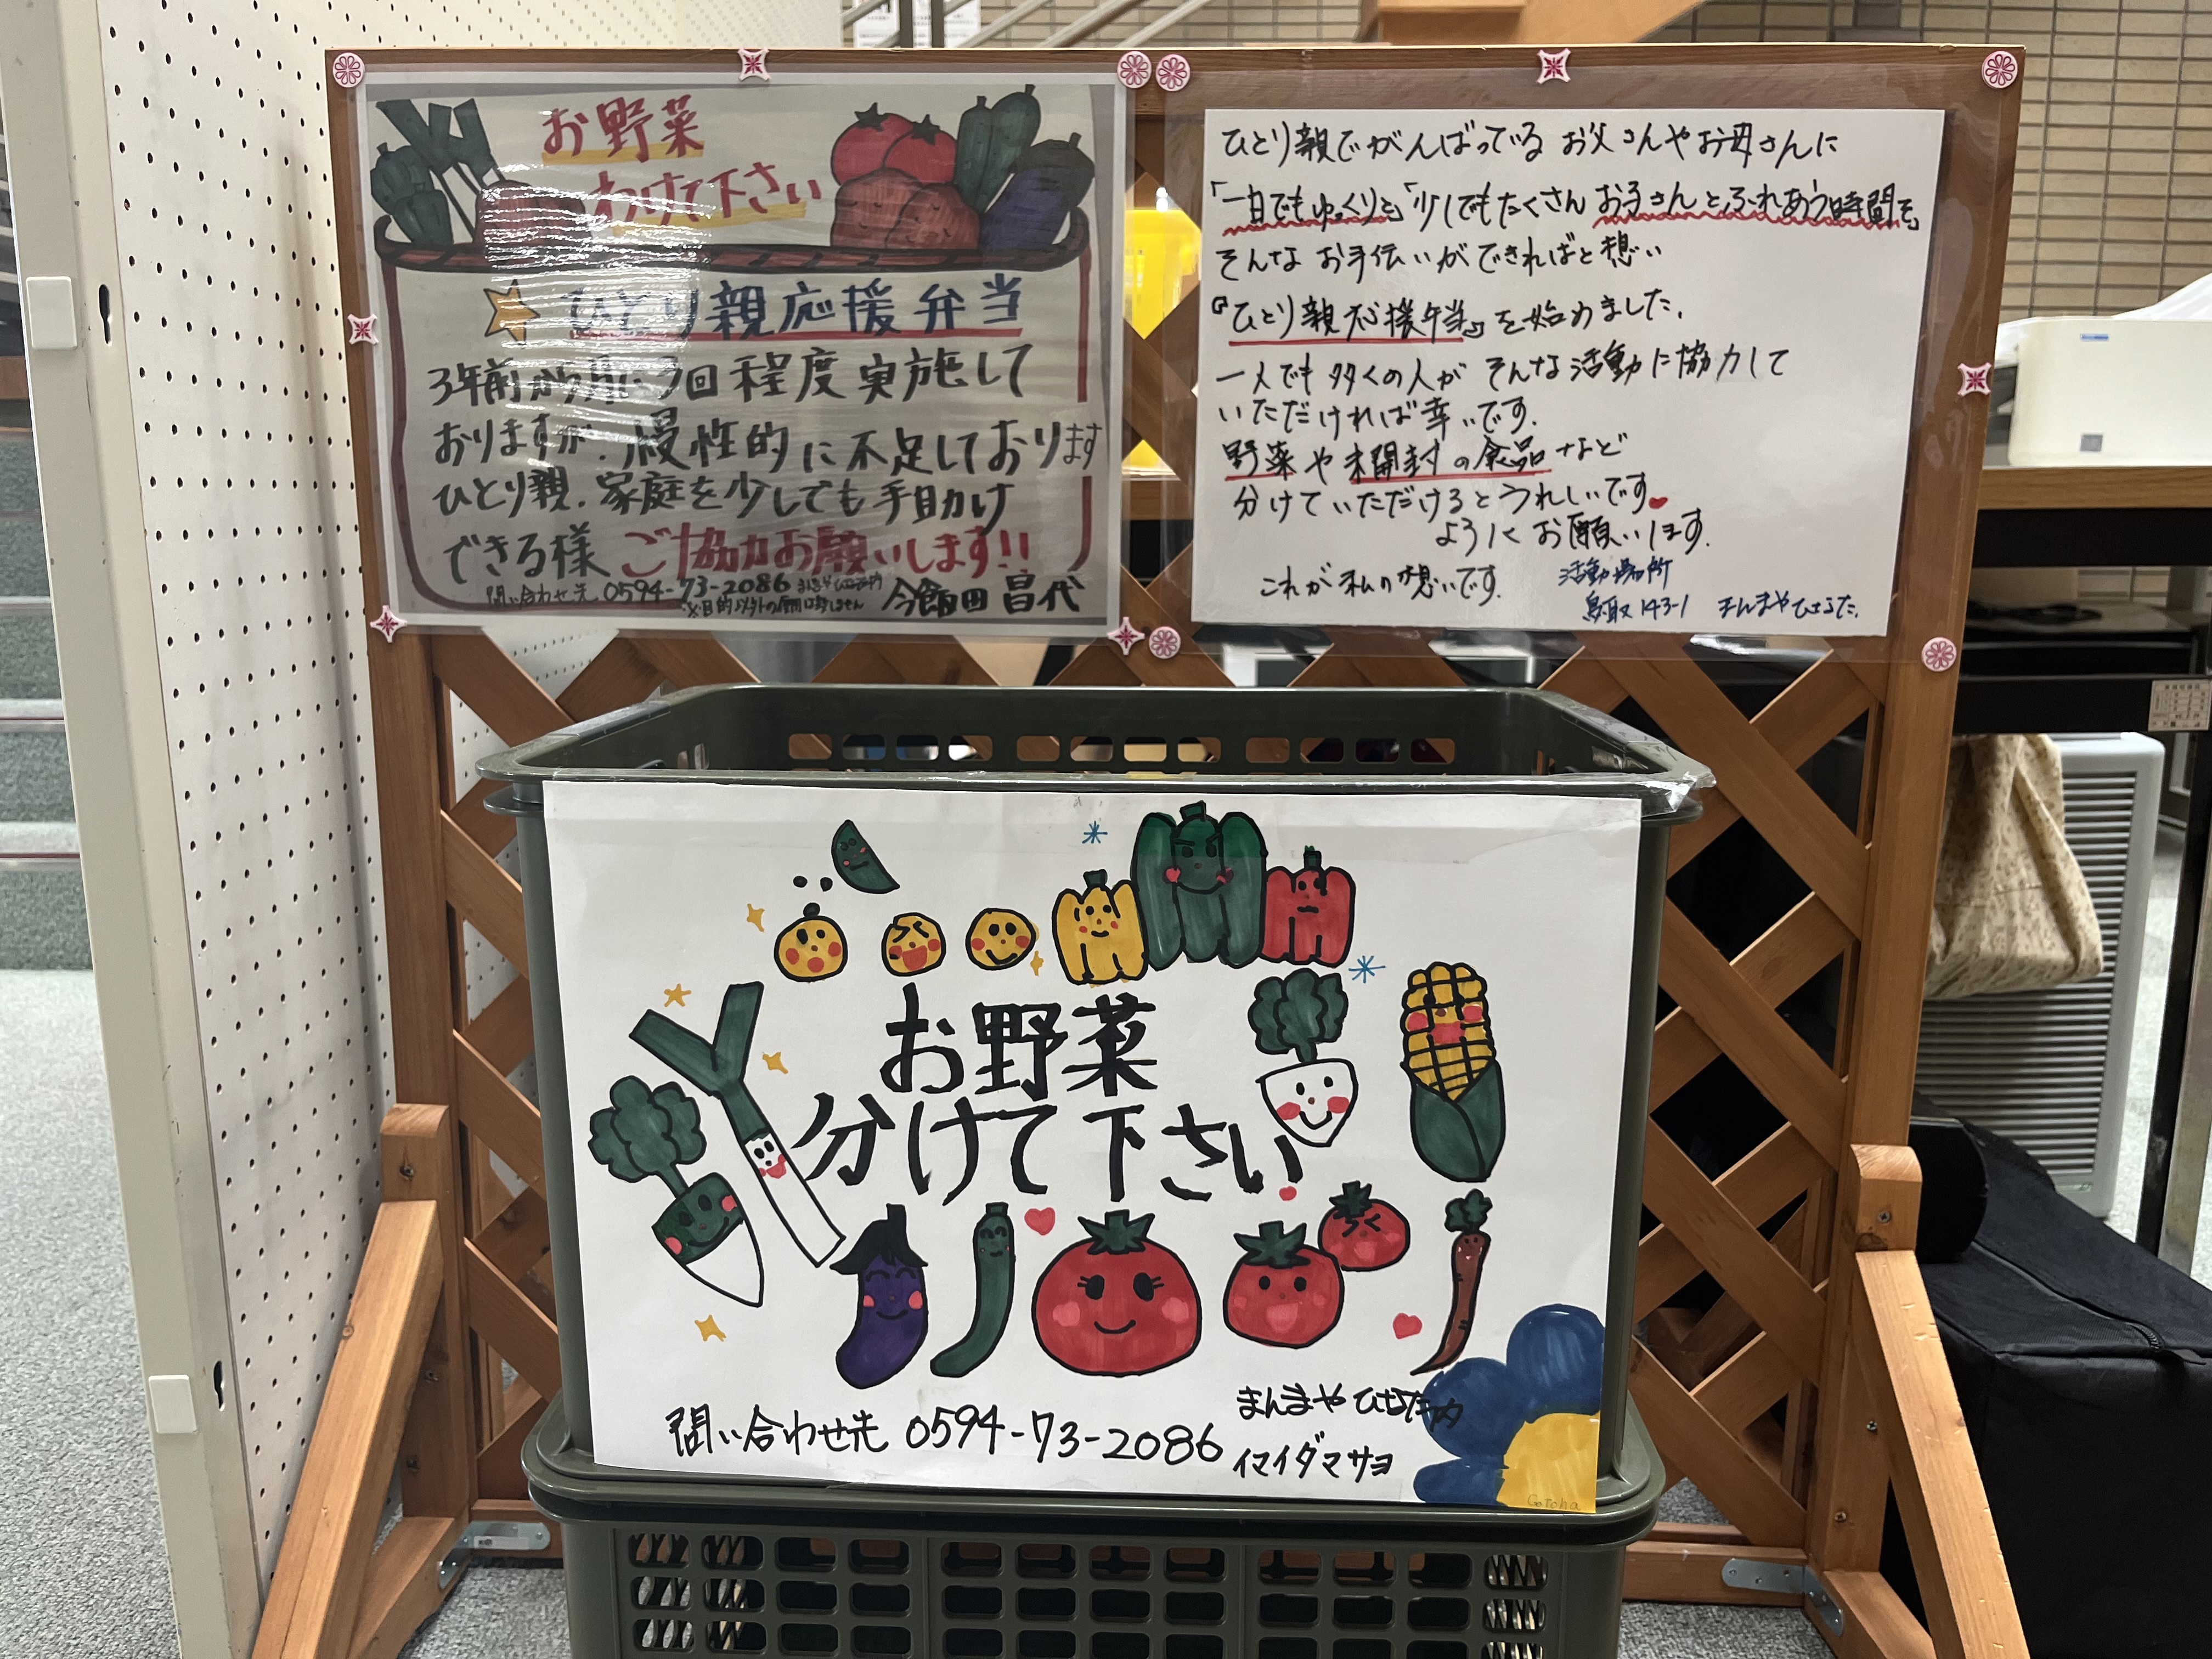 お野菜
わけて下さい
ひとり親応援弁当
3年前から月に3回程度実施して
おりますが、慢性的に不足しております
ひとり親、家庭を少しでも手助け
できる様ご協力お願いします!!
問い合わせ先 0594-73-2086 まんまやひなたカ
今飯田昌代
ひとり親でがんばっているお父さんやお母さんに
「一日でもゆっくりと」「少しでもたくさんお子さんとふれあう時間を」
そんなお手伝いができればと想い
『ひとり親応援弁当』を始めました。
一人でも多くの人がそんな活動に協力して
いただければ幸いです。
野菜や未開封の食品など
分けていただけるとうれしいです
よろしくお願いします。
これが私の想いです。
活動場所
鳥取143-1 まんまやひなた
お野菜
分けて下さい
問い合わせ先 0594-73-2086
まんまやひなたカ
イマイダマサヨ
Gotcha